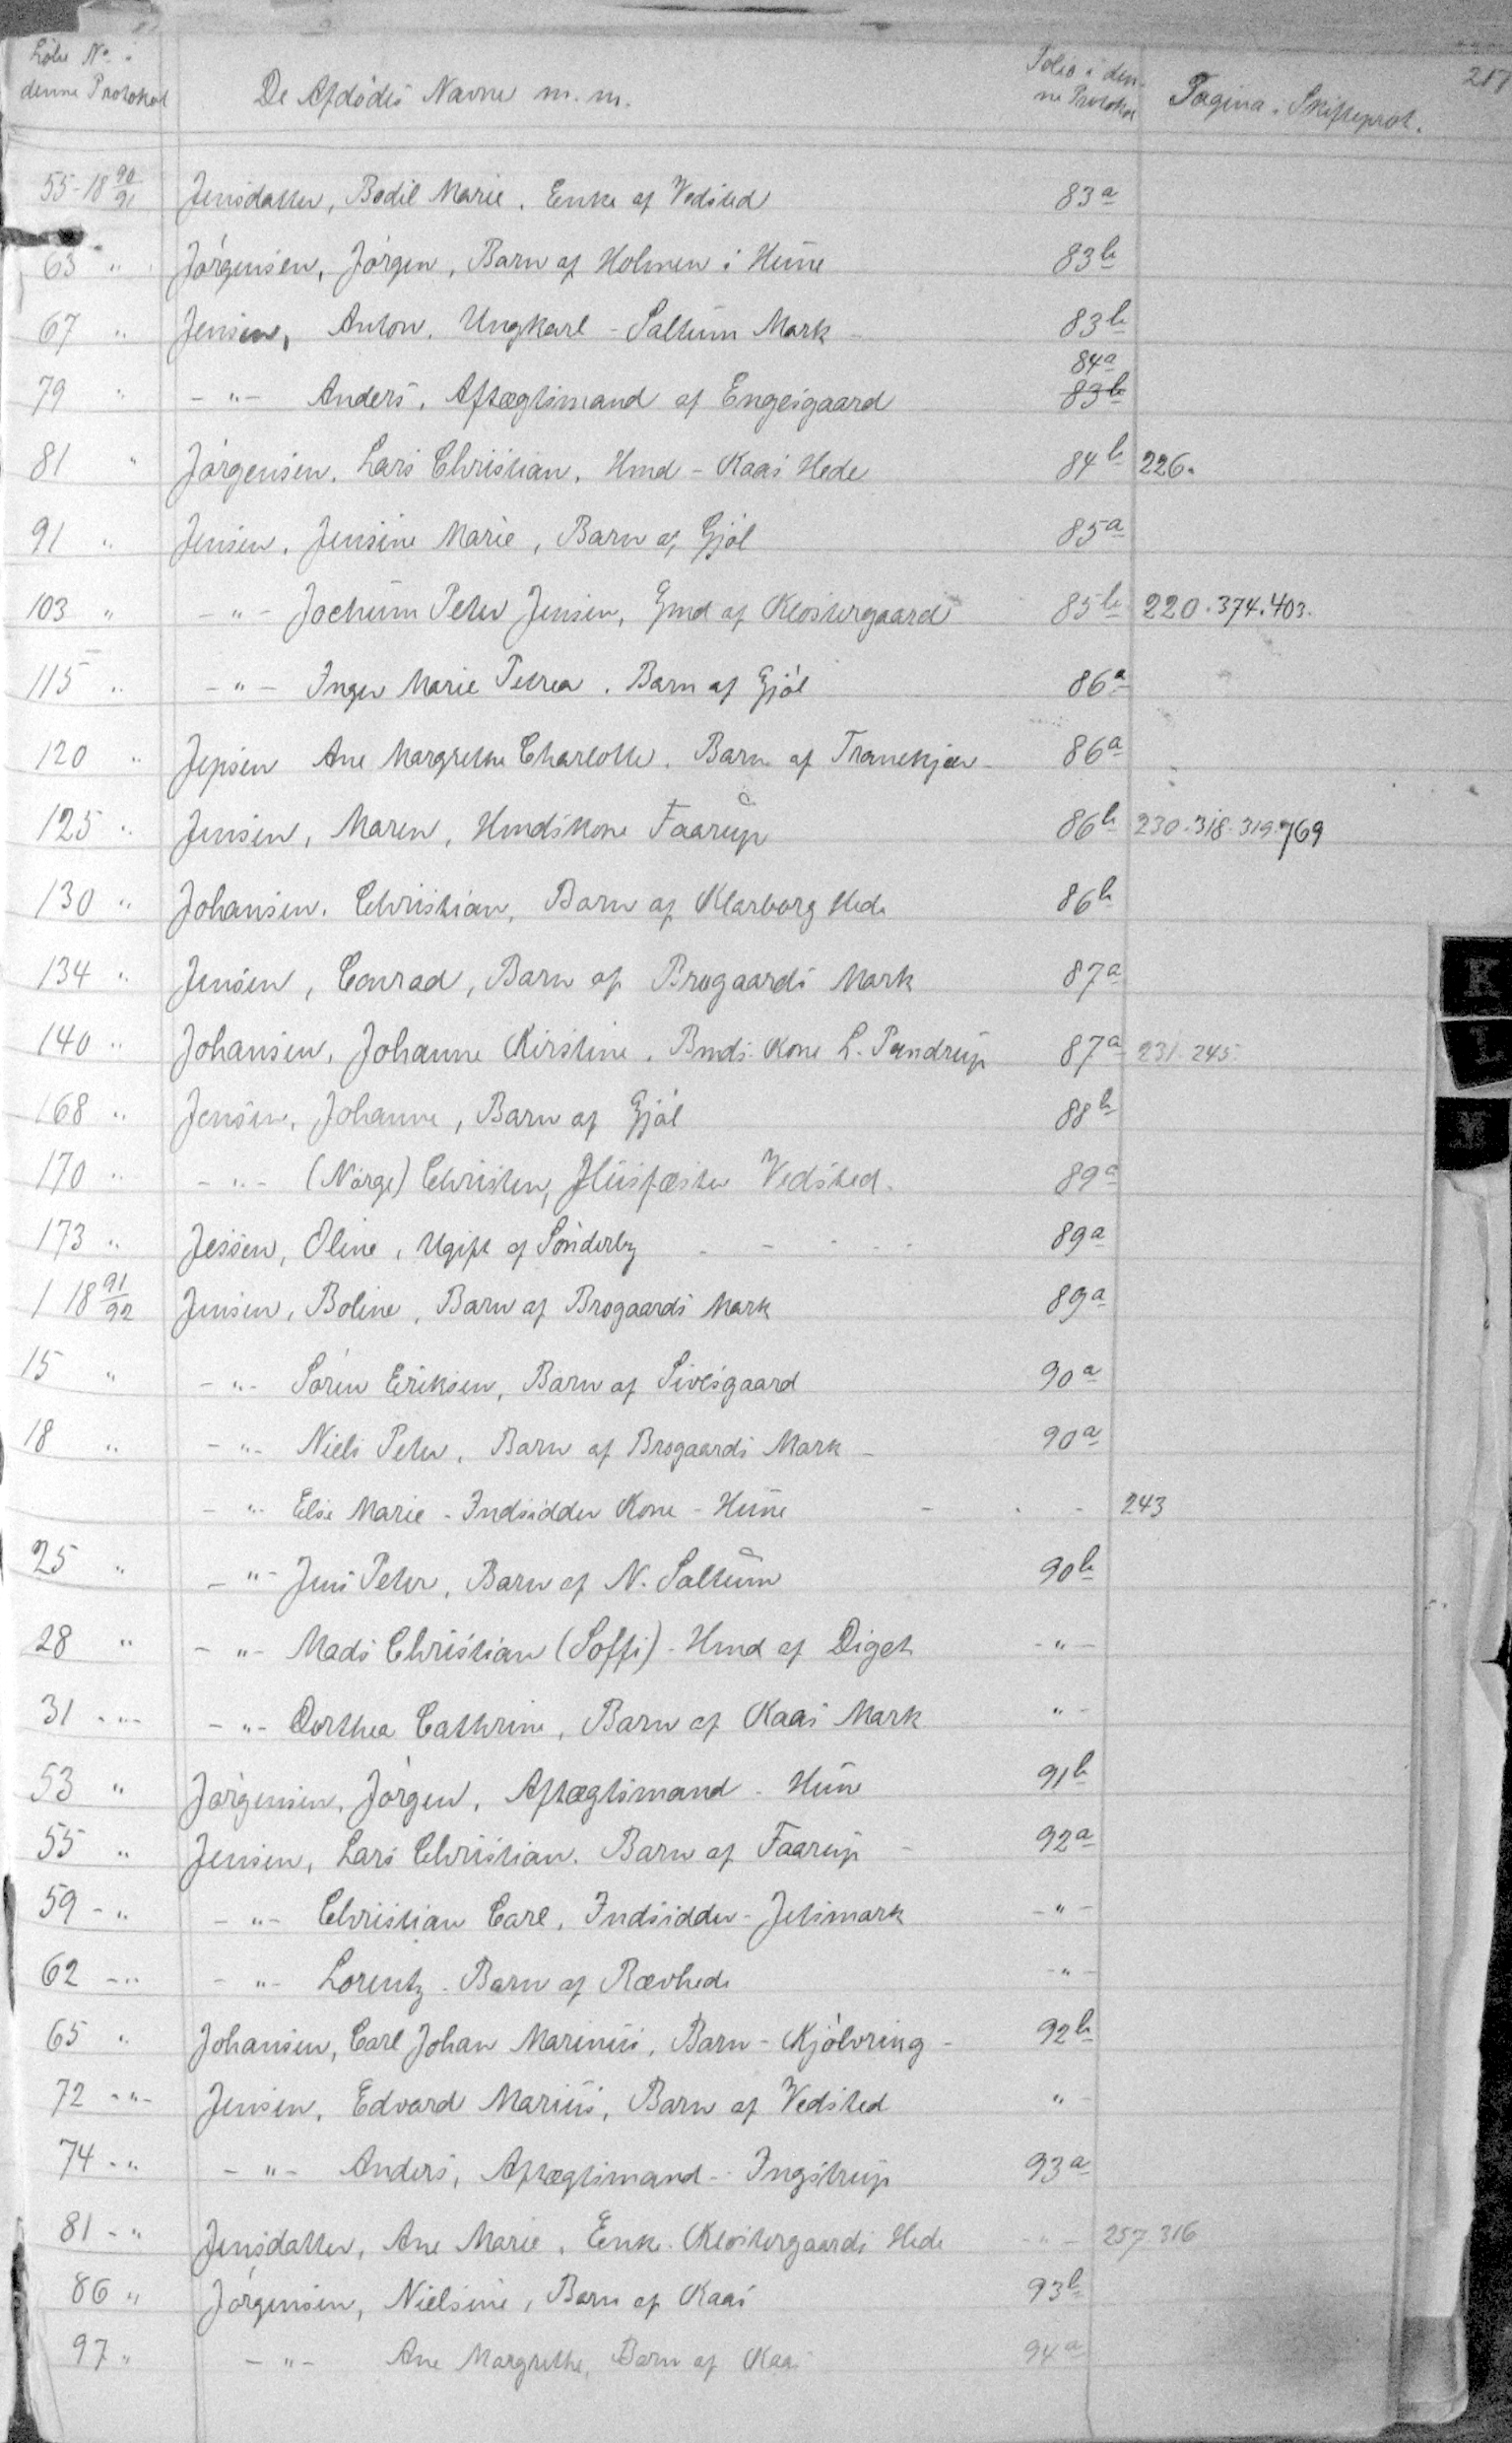 Løbe No. i denne Protokol De Afdødes Navne m. m. Folio i denne Protokol Pagina i Skifteprot. 217
55-18 90/91 Jensdatter, Bodil Marie. Enke af Vedsted 83a
63 " Jørgensen, Jørgen, Barn af Holmen i Hune 83b
67 " Jensen, Anton. Ungkarl - Saltum Mark - 83b
84a
79 " -"- Anders. Aftægtsmand af Engesgaard 83b
81 " Jørgensen. Lars Christian. Hmd - Kaas Hede 84b 226.
91 " Jensen. Jensine Marie, Barn af Gjøl 85a
103 " -"- Jochum Peter Jensen, Gmd af Klostergaard 85b 220.374.403.
115 " -"- Inger Marie Petrea. Barn af Gjøl 86a
120 " Jepsen Ane Margrethe Charlotte. Barn af Tranekjær 86a
125 " Jensen, Maren, Hmdskone Faarup 86b 230.318.319.769
130 " Johansen. Christian, Barn af Klarborg Hede 86b
134 " Jensen, Conrad, Barn af Brogaards Mark 87a
140 " Johansen, Johanne Kirstine. Bmds. Kone L. Pandrup 87a 231.245
168 " Jensen, Johanne, Barn af Gjøl 88b
170 " -"- (Nørge) Christen, Husfæster Vedsted. 89a
173 " Jessen, Oline, Ugift af Sønderby 89a
1 18 91/92 Jensen, Boline, Barn af Brogaards Mark 89a
15 " -"- Søren Eriksen, Barn af Sivesgaard 90a
18 " -"- Niels Peter, Barn af Brogaards Mark - 90a
-"- Else Marie - Indsidder Kone - Hune - - - 243
25 " -"- Jens Peter, Barn af N. Saltum 90b
28 " -"- Mads Christian (Soffi) - Hmd af Diget -"-
31 -"- -"- Dorthea Cathrine, Barn af Kaas Mark "-
53 " Jørgensen, Jørgen, Aftægtsmand - Hune 91b
55 " Jensen, Lars Christian. Barn af Faarup - 92a
59 -" -"- Christian Carl. Indsidder - Jetsmark -"-
62 -" -"- Lorentz - Barn af Rævhede -"-
65 " Johansen, Carl Johan Marinus, Barn - Kjølvring - 92b
72 -"- Jensen, Edvard Marius, Barn af Vedsted "-
74 -" -"- Anders, Aftægtsmand - Ingstrup 93a
81 -" Jensdatter, Ane Marie, Enke. Klostergaards Hede -"- 257.316
86 " Jørgensen, Nielsine, Barn af Kaas 93b
97 " -"- Ane Margrethe, Barn af Kaas 94a